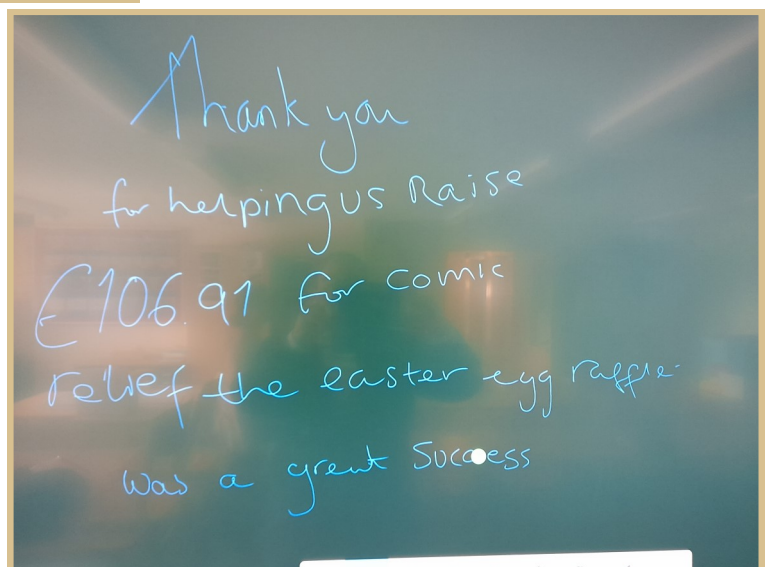 Thank you
for helping us Raise
£106.91 for comic
relief the easter egg raffle
was a great Success